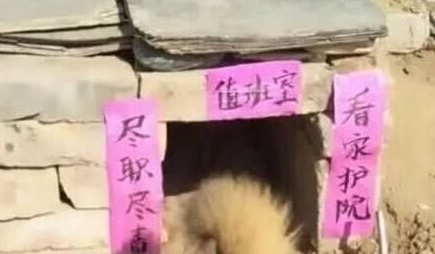 值班室
尽职尽责
看家护院